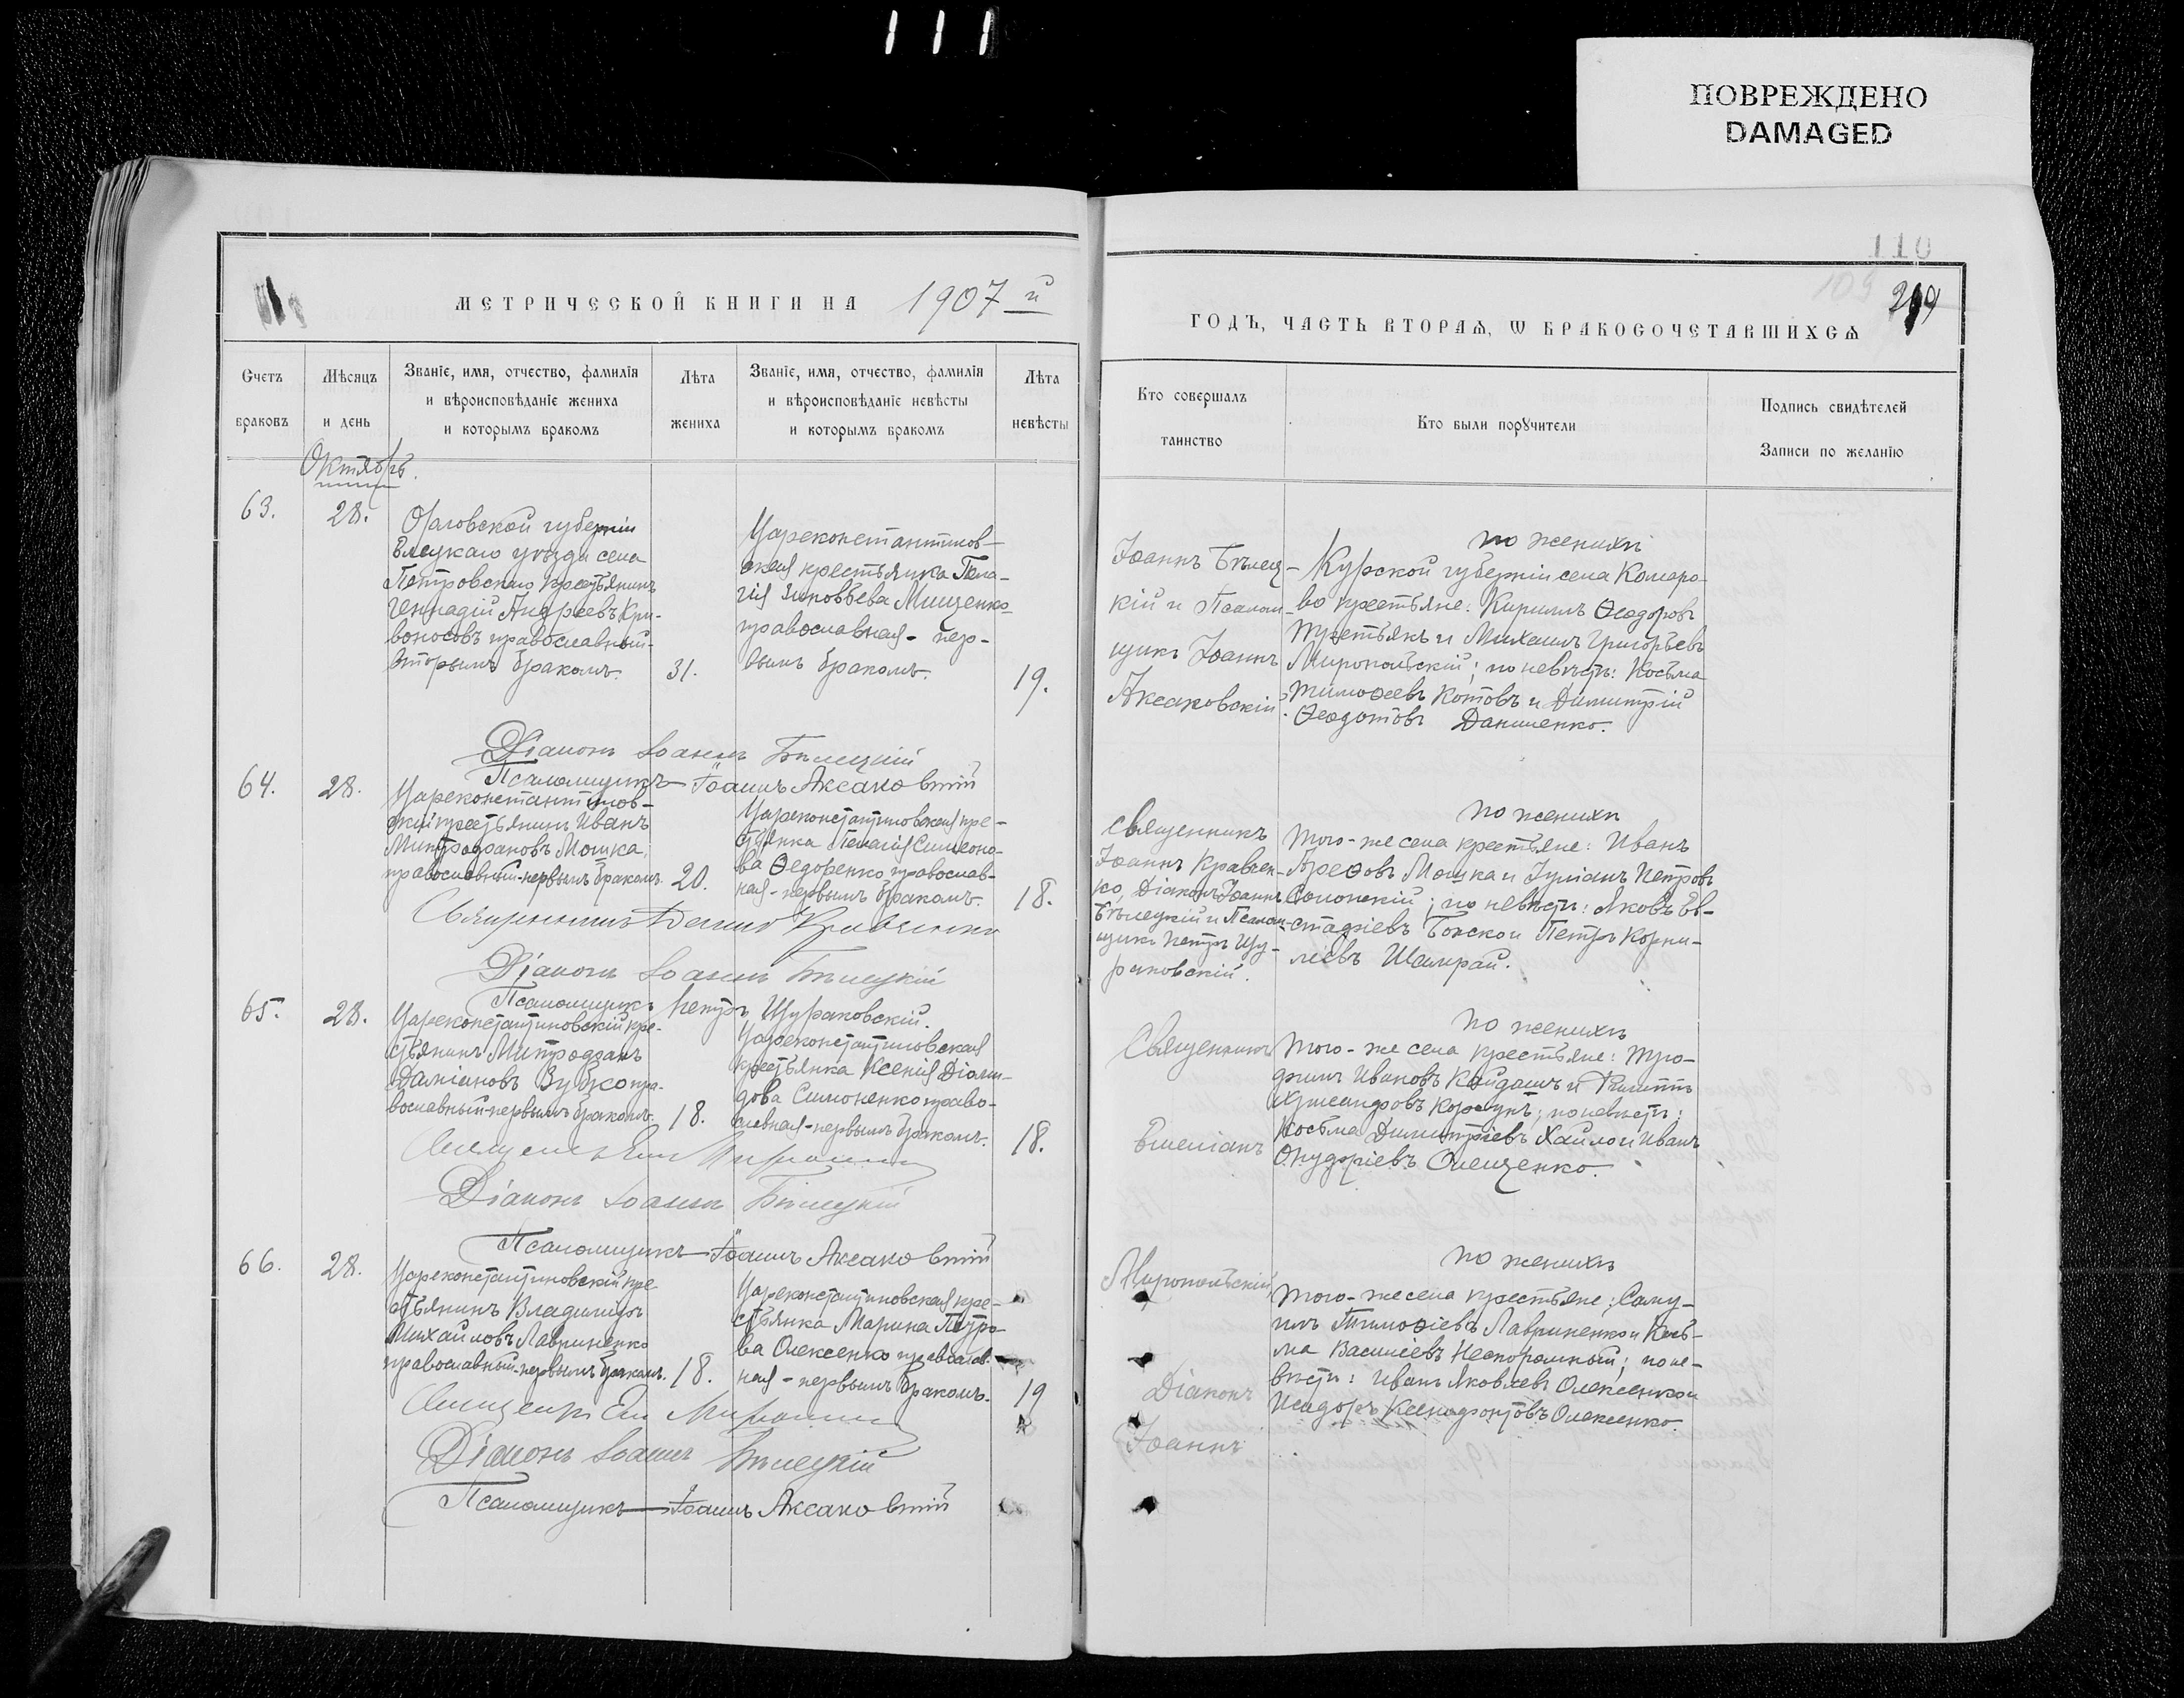 111
ПОВРЕЖДЕНО
DAMAGED
110
109
МЕТРИЧЕСКОЙ КНИГИ НА 1907 й
ГОДЪ, ЧАСТЬ ВТОРАЯ, Ѡ БРАКОСОЧЕТАВШИХСЯ
Счетъ
браковъ
Мѣсяцъ
и день
Званіе, имя, отчество, фамилія
и вѣроисповѣданіе жениха
и которымъ бракомъ
Лѣта
жениха
Званіе, имя, отчество, фамилія
и вѣроисповѣданіе невѣсты
и которымъ бракомъ
Лѣта
невѣсты
Кто совершалъ
таинство
Кто были порꙋчители
Подпись свидѣтелей
Записи по желанію
Октябрь.
63.
28.
Орловской губерніи
Елецкаго уѣзда села
Петровскаго крестьянинъ
Геннадій Андреевъ Кри-
воносовъ православный-
вторымъ бракомъ.
31.
Цареконстантинов-
ская крестьянка Пела-
гія Зиновьева Мищенко
православная - пер-
вымъ бракомъ.
19.
Іоаннъ Бѣлец-
кій и Псалом-
щикъ Іоаннъ
Аксаковскій.
по женихѣ
Курской губерніи села Комаро-
во крестьяне: Кириллъ Ѳеодоровъ
Третьякъ и Михаилъ Григорьевъ
Миропольскій; по невѣстѣ: Косьма
Тимоѳеевъ Котовъ и Димитрій
Ѳеодотовъ Даниленко.
Діаконъ Іоаннъ Бѣлецкій
Псаломщикъ Іоаннъ Аксаковскій
64.
28.
Цареконстантинов-
скій крестьянинъ Иванъ
Митрофановъ Мошка,
православный-первымъ бракомъ.
20.
Цареконстантиновская кре-
стьянка Пелагія Симеоно-
ва Ѳедоренко православ-
ная - первымъ бракомъ.
18.
Священникъ
Іоаннъ Кравчен-
ко, Діаконъ Іоаннъ
Бѣлецкій и Псалом-
щикъ Петръ Щу-
раковскій.
по женихѣ
того-же села крестьяне: Иванъ
Арефовъ Мошка и Іуліанъ Петровъ
Солонскій; по невѣстѣ: Яковъ Ев-
стафіевъ Бонско и Петръ Корни-
ліевъ Шамрай.
Священникъ Іоаннъ Кравченко
Діаконъ Іоаннъ Бѣлецкій
Псаломщикъ Петръ Щураковскій.
65.
28.
Цареконстантиновскій кре-
стьянинъ Митрофанъ
Даміановъ Зубко пра-
вославный-первымъ бракомъ.
18.
Цареконстантиновская
крестьянка Ксенія Діоми-
дова Симоненко право-
славная-первымъ бракомъ.
18.
Священникъ
Емеліанъ
по женихѣ
того-же села крестьяне: Тро-
фимъ Ивановъ Кайдашъ и Филиппъ
Александровъ Корсунъ; по невѣстѣ:
Косьма Димитріевъ Хайло и Иванъ
Онуфріевъ Олещенко.
Діаконъ Іоаннъ Бѣлецкій
Псаломщикъ Іоаннъ Аксаковскій
66.
28.
Цареконстантиновскій кре-
стьянинъ Владиміръ
Михайловъ Лавриненко
православный-первымъ бракомъ.
18.
Цареконстантиновская кре-
стьянка Марина Петро-
ва Олексенко православ-
ная - первымъ бракомъ.
19
Миропольскій,
Діаконъ
Іоаннъ
по женихѣ
того-же села крестьяне: Саму-
илъ Тимоѳіевъ Лавриненко и Кось-
ма Василіевъ Нескоромный; по не-
вѣстѣ: Иванъ Яковлевъ Олексенко и
Исидоръ Ксенофонтовъ Олексенко.
Діаконъ Іоаннъ Бѣлецкій
Псаломщикъ Іоаннъ Аксаковскій